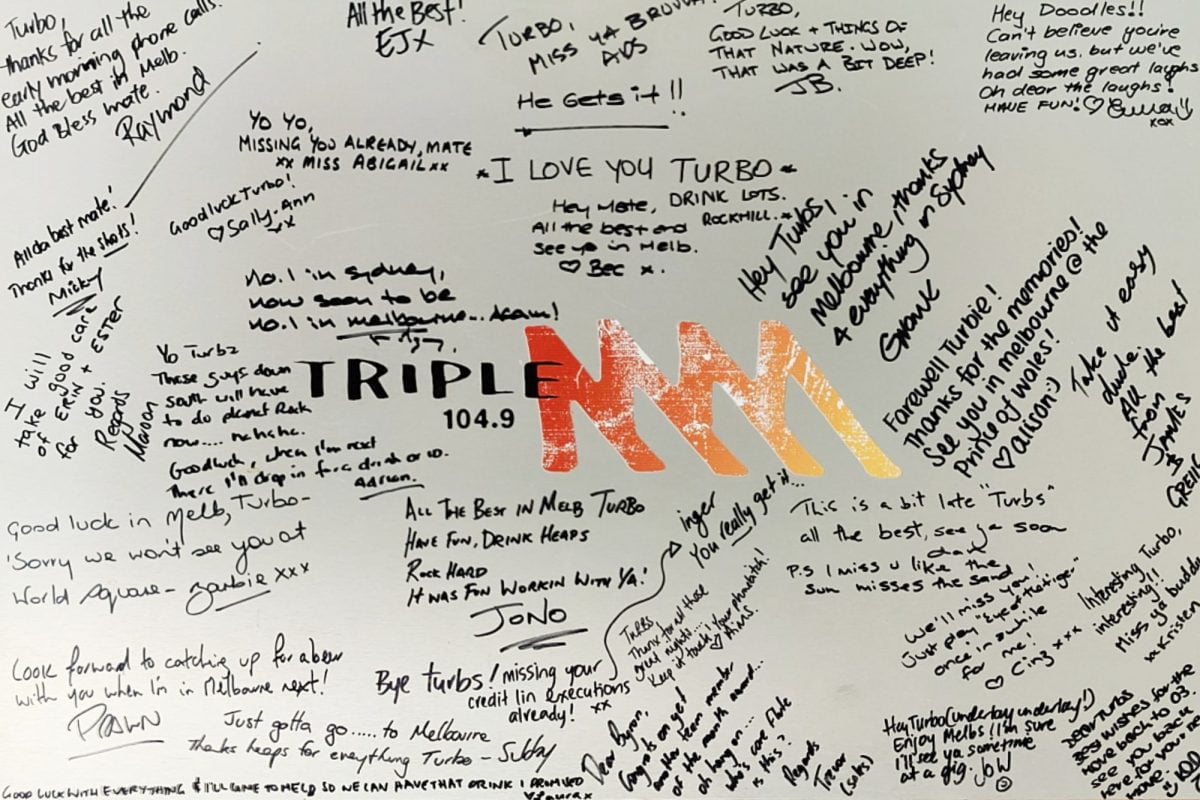 Turbo,
thanks for all the
early morning phone calls.
All the best in Melb.
God Bless mate.
Raymond
All the Best!
EJX
TURBO,
MISS YA BRUVVA!
ADS
TURBO,
GOOD LUCK + THINGS OF
THAT NATURE. WOW,
THAT WAS A BIT DEEP!
JB.
Hey Doodles!!
Can't believe you're
leaving us. but we've
had some great laughs
Oh dear the laughs!
HAVE FUN! ♡ Emma
xox
He Gets it!!
YO YO,
MISSING YOU ALREADY, MATE
xx MISS ABIGAIL xx
I LOVE YOU TURBO
Hey Mate, DRINK LOTS.
All the best and ROCKHILL.
see ya in Melb.
♡ Bec x.
Good luck Turbo!
♡ Sally-Ann
xx
All da best mate!
Thanks for the shots!
Micky
Hey Turbs,
see you in
Melbourne, thanks
4 everything in Sydney
Grant
No. 1 in Sydney,
now soon to be
No. 1 in melbourne... Again!
I will
take good care
of ERIN + ESTER
for you.
Regards
Yo Turbz
These guys down
south will have
to do planet Rock
now.... hehehe.
Goodluck, when I'm next
there I'll drop in for a drink or 10.
Adrian.
TRIPLE M
104.9
Farewell Turbie!
Thanks for the memories!
See you in melbourne @ the
Prince of Wales!
♡ alison :)
Take it easy
dude.
All the best
from
Good luck in Melb, Turbo-
'Sorry we won't see you at
World Square - Barbie xxx
ALL THE BEST IN MELB TURBO
HAVE FUN, DRINK HEAPS
ROCK HARD
IT WAS FUN WORKIN WITH YA!
JONO
inger
You really get it...
This is a bit late "Turbs"
all the best, see ya soon
P.S I miss u like the
sun misses the sand
TURBS,
Thanx for all those
great nights...
Keep it touch! Your phonebitch!
♡ Aims.
We'll miss you!
Just play "Eye of the tiger"
once in awhile
for me!
♡ Cin3 xxxx
Interesting Turbo,
interesting!!
Miss ya budday
xxKristen
Look forward to catching up for a beer
with you when I'm in Melbourne next!
DAWN
Bye turbs! missing your
credit lin executions
already! xx
Just gotta go ..... to Melbourne
Thanks heaps for everything Turbo - Subby
Dear Byron,
Congrats on yet
another team member
of the month award...
oh hang on...
who's care flute
is this?
Regards
Trevor
(sales)
Hey Turbo (underbay underbay!)
Enjoy Melbs! I'm sure
I'll see ya sometime
at a gig. JOW
DEAR TURBS
BEST WISHES for the
move back to 03.
see you back
here for your next
move.
GOOD LUCK WITH EVERYTHING & I'LL COME TO MELB SO WE CAN HAVE THAT DRINK I PROMISED
♡ Laura x